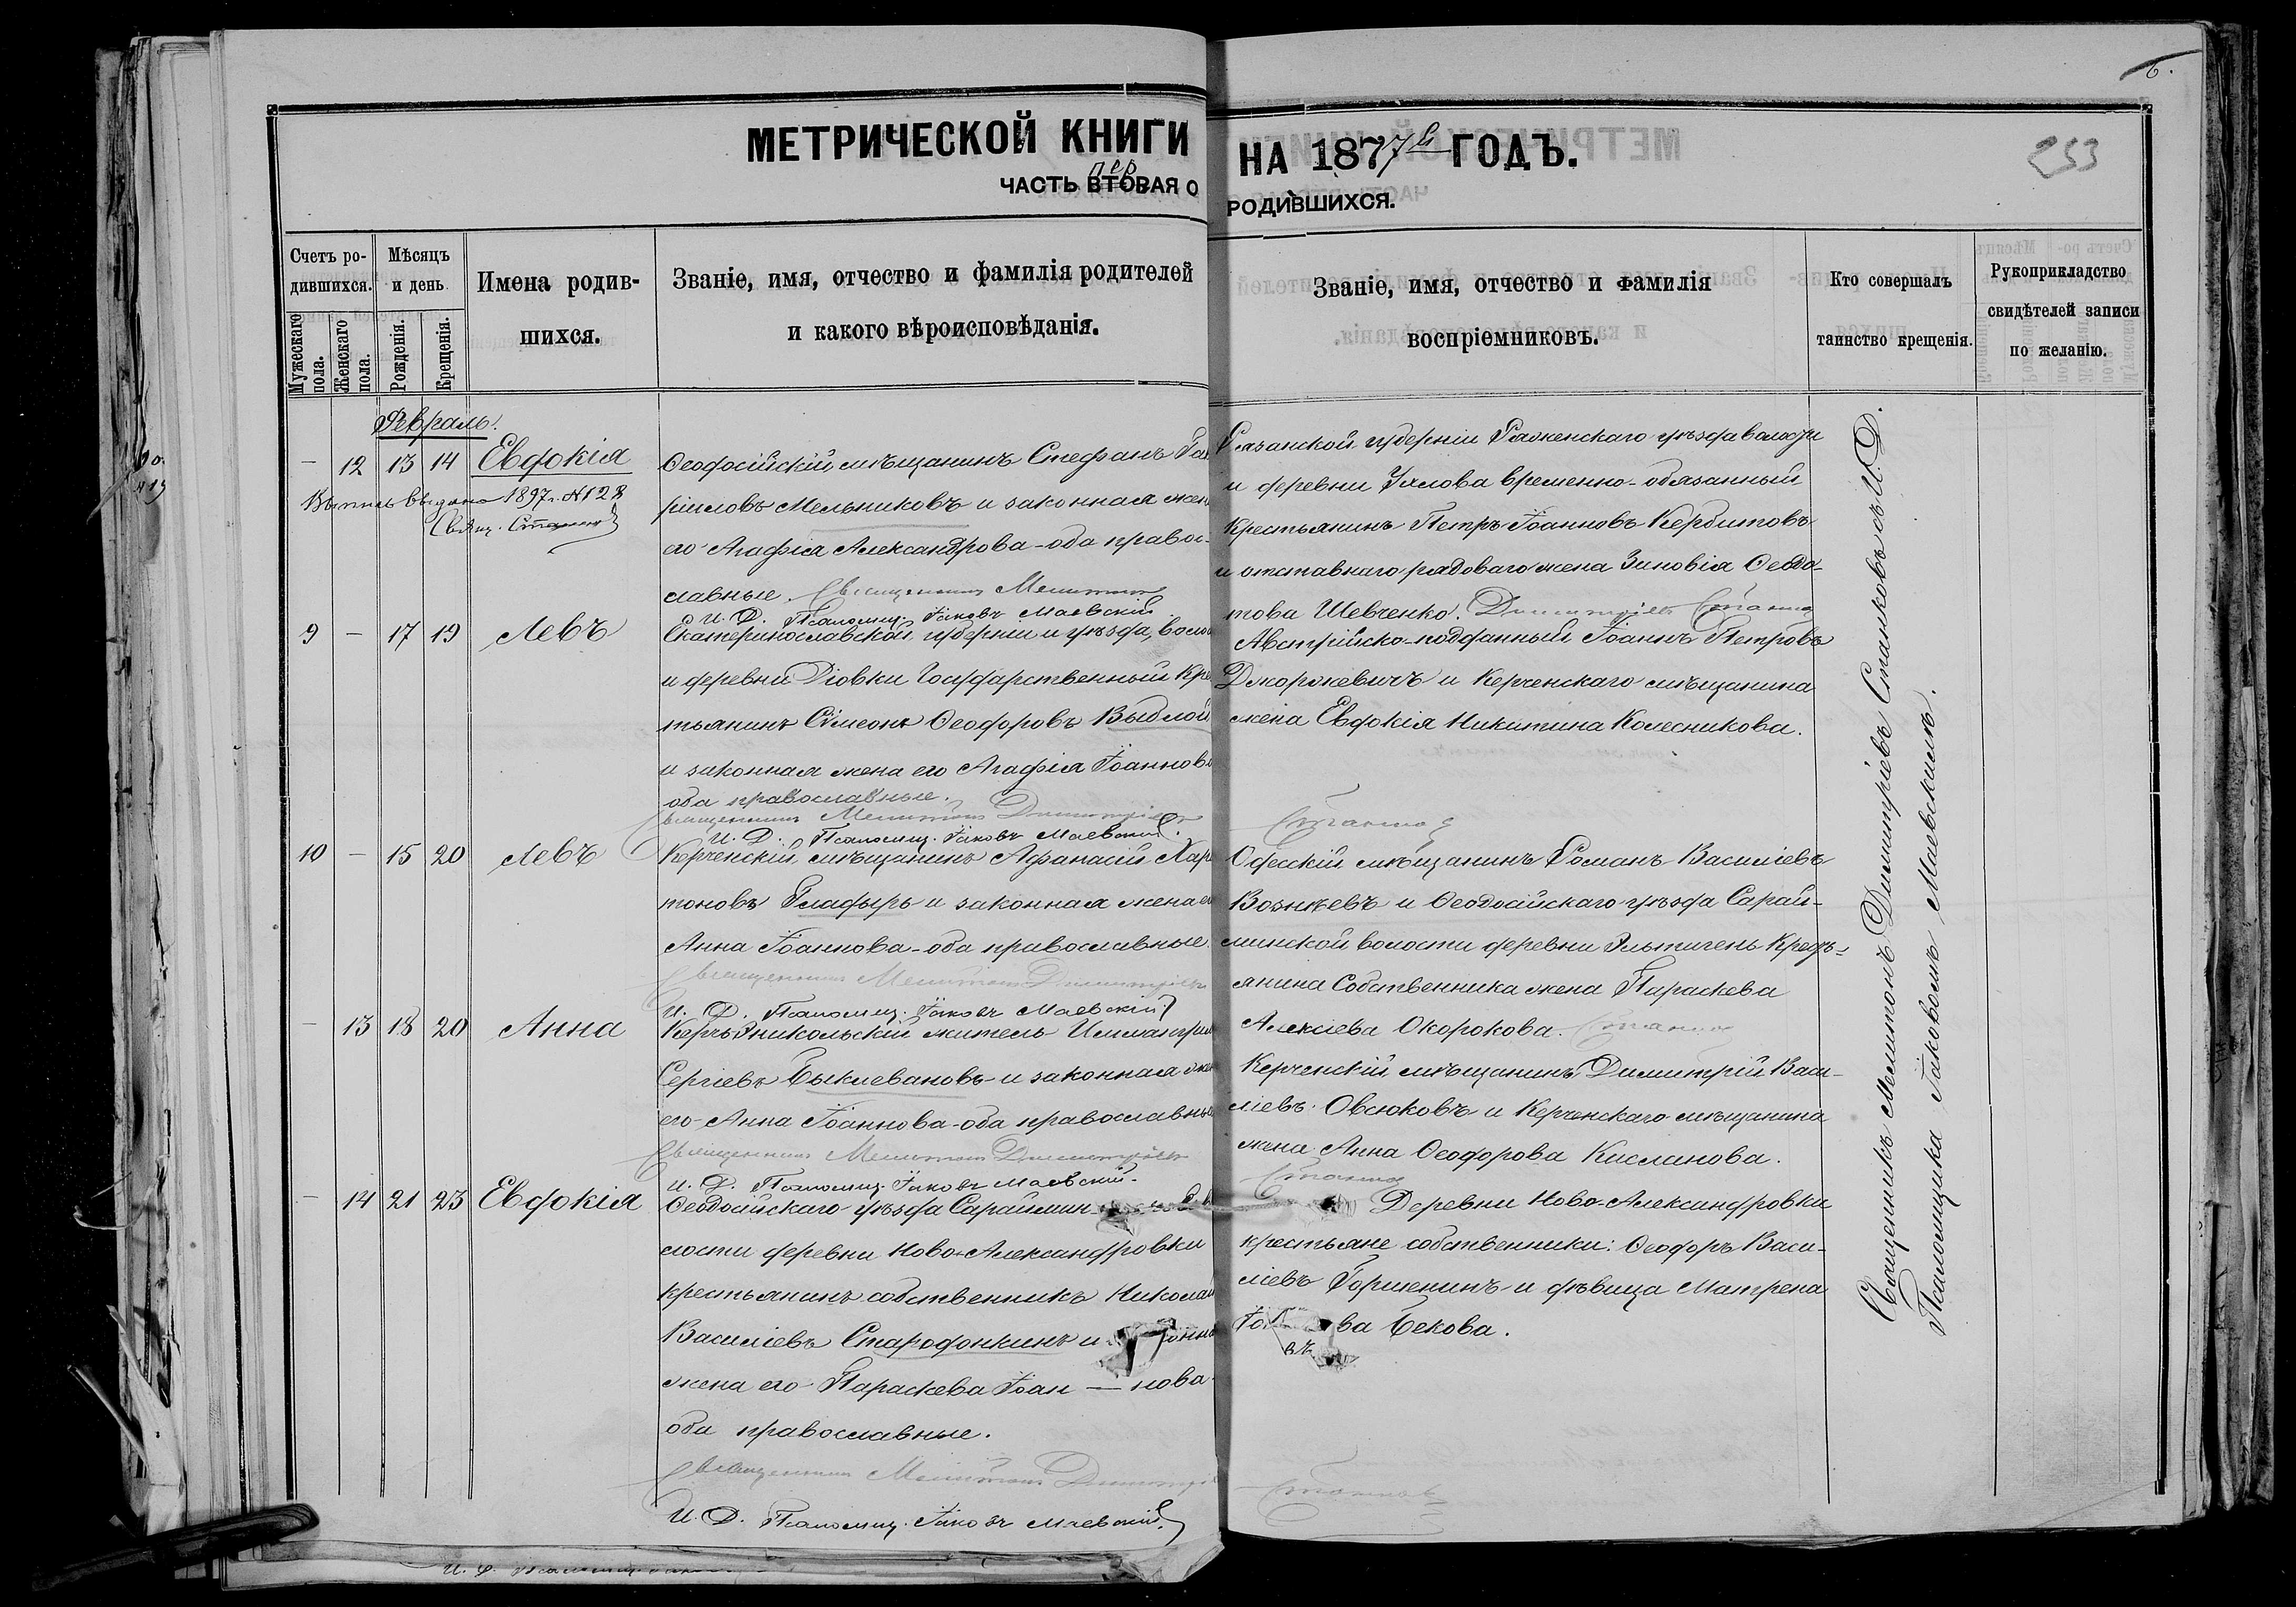 6.
МЕТРИЧЕСКОЙ КНИГИ НА 1877й ГОДЪ.
253
пер
ЧАСТЬ ВТОРАЯ О РОДИВШИХСЯ.
Счетъ родившихся.
Мужескаго пола.
Женскаго пола.
Мѣсяцъ и день
Рожденія.
Крещенія.
Имена родившихся.
Званіе, имя, отчество и фамилія родителей
и какого вѣроисповѣданія.
Званіе, имя, отчество и фамилія
воспріемниковъ.
Кто совершалъ
таинство крещенія.
Рукоприкладство
свидѣтелей записи
по желанію.
Февраль.
— 12 13 14 Евдокія
Выпись выдана 1897 г. №128
Свящ. Станков
Ѳеодосійскій мѣщанинъ Стефанъ Гав
ріиловъ Мельниковъ и законная жен
его Агафія Александрова - оба правос-
лавные. Священникъ Мелитонъ
И. Д. Псаломщ. Іаковъ Маевскій
Рязанской губерніи Ряженскаго уѣзда волости
и деревни Ухлова временно-обязанный
крестьянинъ Петръ Іоанновъ Кербитовъ
и отставнаго рядоваго жена Зиновія Ѳедо-
това Шевченко. Димитріевъ Станков
9 — 17 19 Левъ
Екатеринославской губерніи и уѣзда, воло
и деревни Діовки Государственный кре
тьянинъ Сѵмеонъ Ѳеодоровъ Выблой
и законная жена его Агафія Іоаннова
оба православные.
Священникъ Мелитонъ Димитріевъ
И. Д. Псаломщ. Іаковъ Маевскій.
Австрійско-подданный Іоаннъ Петровъ
Джоржевичъ и Керченскаго мѣщанина
жена Евдокія Никитина Колесникова.
Станков
10 — 15 20 Левъ
Керченскій мѣщанинъ Афанасій Хари
тоновъ Гладырь и законная жена ег
Анна Іоаннова - оба православные.
Священникъ Мелитонъ Димитріевъ
И. Д. Псаломщ. Іаковъ Маевскій
Одесскій мѣщанинъ Романъ Василіевъ
Вознѣевъ и Ѳеодосійскаго уѣзда Сарай-
минской волости деревни Эльтигень Крест-
янина Собственника жена Параскева
Алексіева Окорокова. Станков
— 13 18 20 Анна
Керчь Эникольскій житель
Сергіевъ Быклевановъ и законная жен
его Анна Іоаннова - оба православные
Священникъ Мелитонъ Димитріевъ
И. Д. Псаломщ. Іаковъ Маевскій.
Керченскій мѣщанинъ Димитрій Васи-
ліевъ Овсюковъ и Керченскаго мѣщанина
жена Анна Ѳеодорова Кисланова.
Станков
— 14 21 23 Евдокія
Ѳеодосійскаго уѣзда Сараймин
лости деревни Ново-Александровки
крестьянинъ собственникъ Николай
Василіевъ Стародонкинъ и онна
жена его Параскева Іоан — нова
оба православные.
Священникъ Мелитонъ Димитріев
И. Д. Псаломщ. Іаковъ Маевскій.
Деревни Ново-Александровки
крестьяне собственники: Ѳеодоръ Васи-
ліевъ Горшенинъ и дѣвица Матрена
Іо ва Бекова.
Станковъ
Священникъ Мелитонъ Димитріевъ Станковъ съ И. Д.
Псаломщика Іаковомъ Маевскимъ.